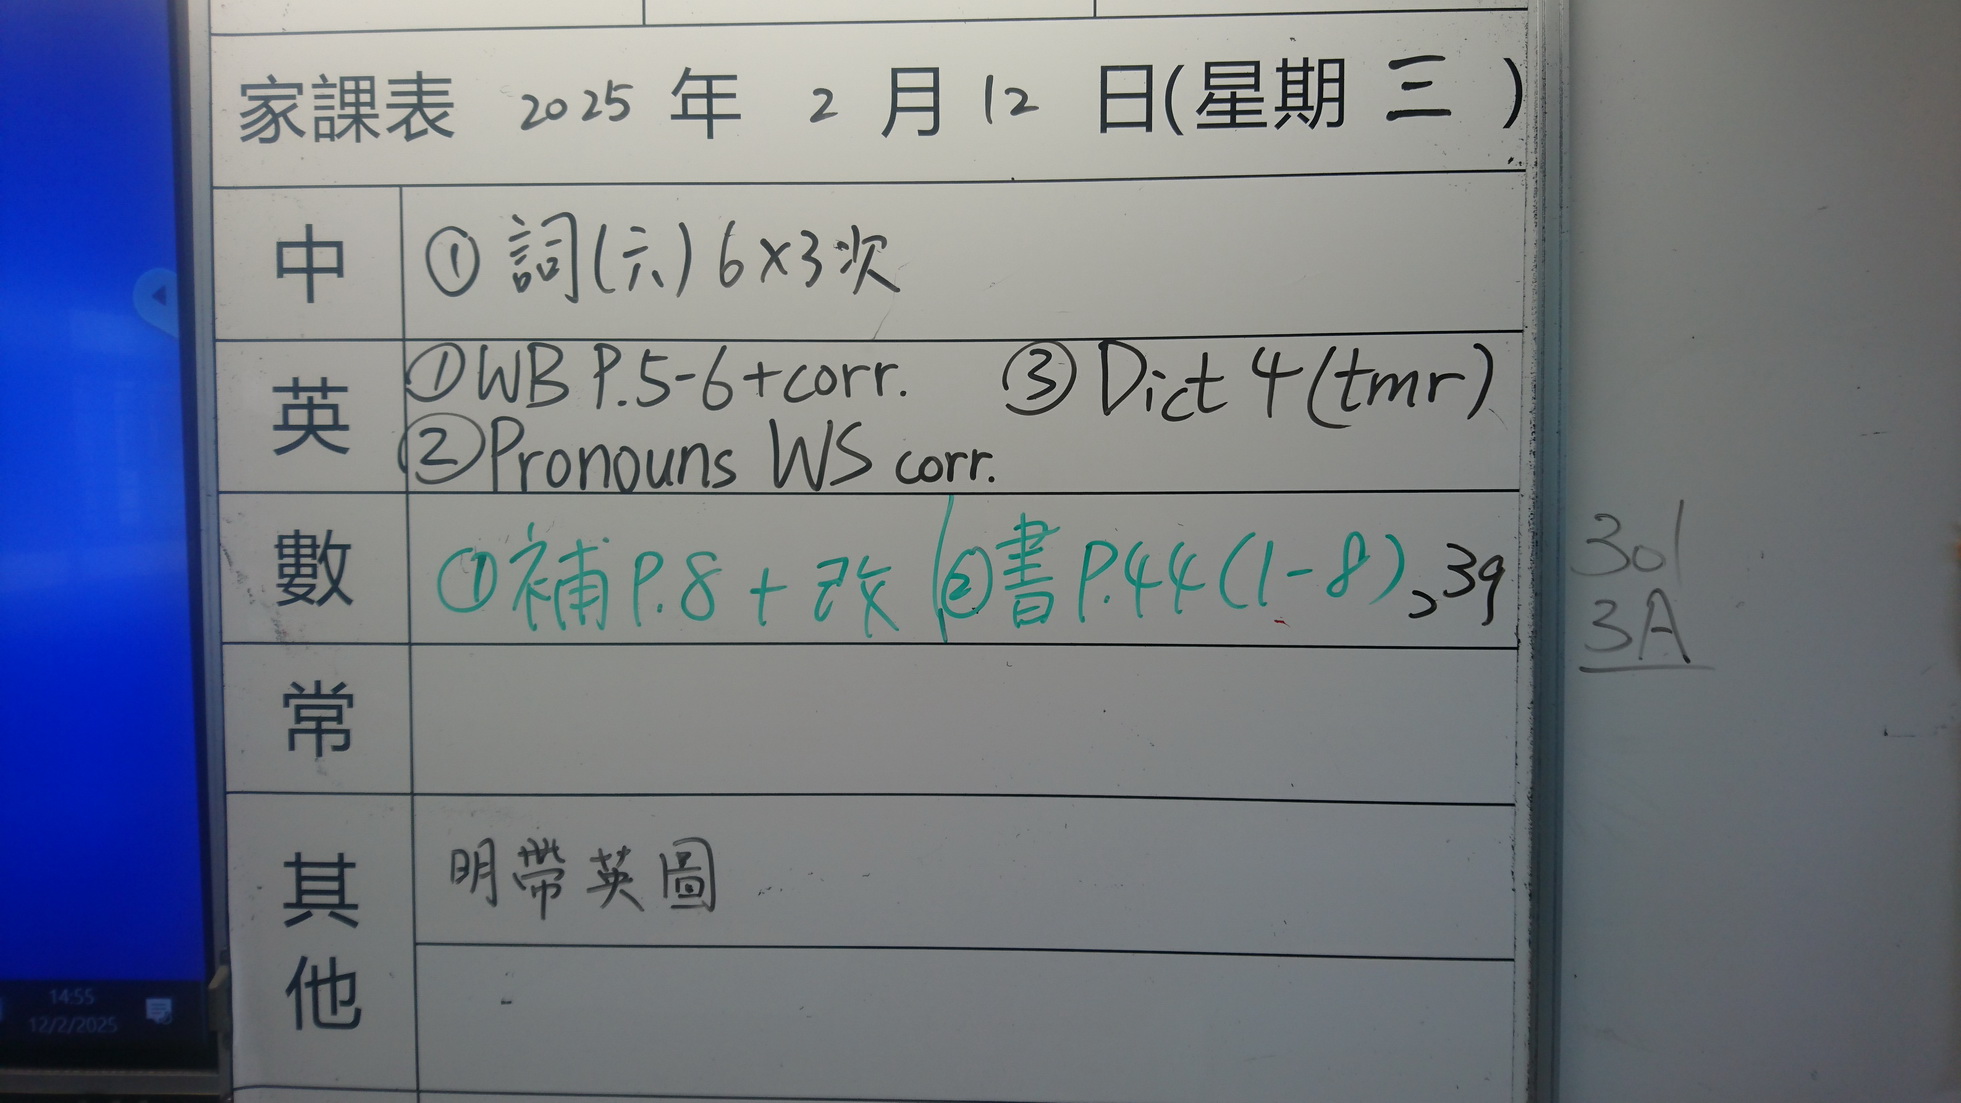 家課表 2025 年 2 月 12 日(星期 三 )
中 ① 詞(六) 6×3次
英 ①WB P.5-6+corr. ③ Dict 4 (tmr)
②Pronouns WS corr.
數 ①補 P.8 + 改 ②書 P.44 (1-8), 39
301
3A
常
其他
明帶英圖
14:55
12/2/2025